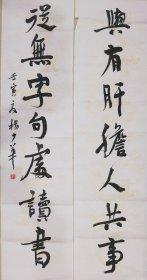 與有肝膽人共事
從無字句處讀書
壬寅夏楊夕華